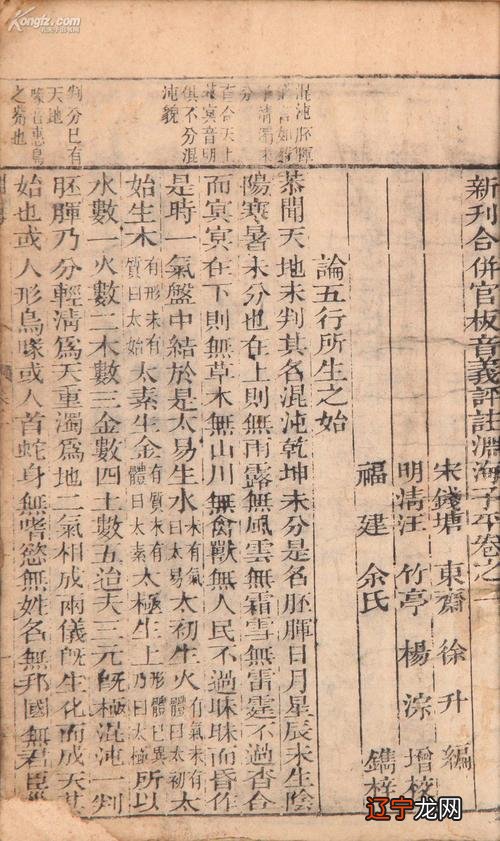 Kongfz.com
孔夫子旧书网
新刊合併官板音義評註淵海子平卷之
宋錢塘 東齋 徐升 編
明清江 竹亭 楊淙 增校
福建 余氏 鐫梓
論五行所生之始
恭聞天地未判其名混沌乾坤未分是名胚腪日月星辰未生陰
陽寒暑未分也在上則無雨露無風雲無霜雪無雷霆不過杳合
而冥冥在下則無草木無山川無禽獸無人民不過昧昧而昏作
是時一氣盤中結於是太易生水未有氣曰太易太初生火有氣未有體曰太初太
始生木有形未有質曰太始太素生金有質未有體曰太素太極生土形體已具乃曰太極所以
水數一火數二木數三金數四土數五迨夫三元既極混沌一判
胚腪乃分輕清為天重濁為地二氣相成兩儀既生化而成天
始也或人形鳥喙或人首蛇身無嗜慾無姓名無邦國無君臣
混沌胚腪
清濁未
分
百合天上
冥音明
俱不分混
沌貌
判分巳有
天地
喙音惠鳥
之嘴也
辽宁龙网